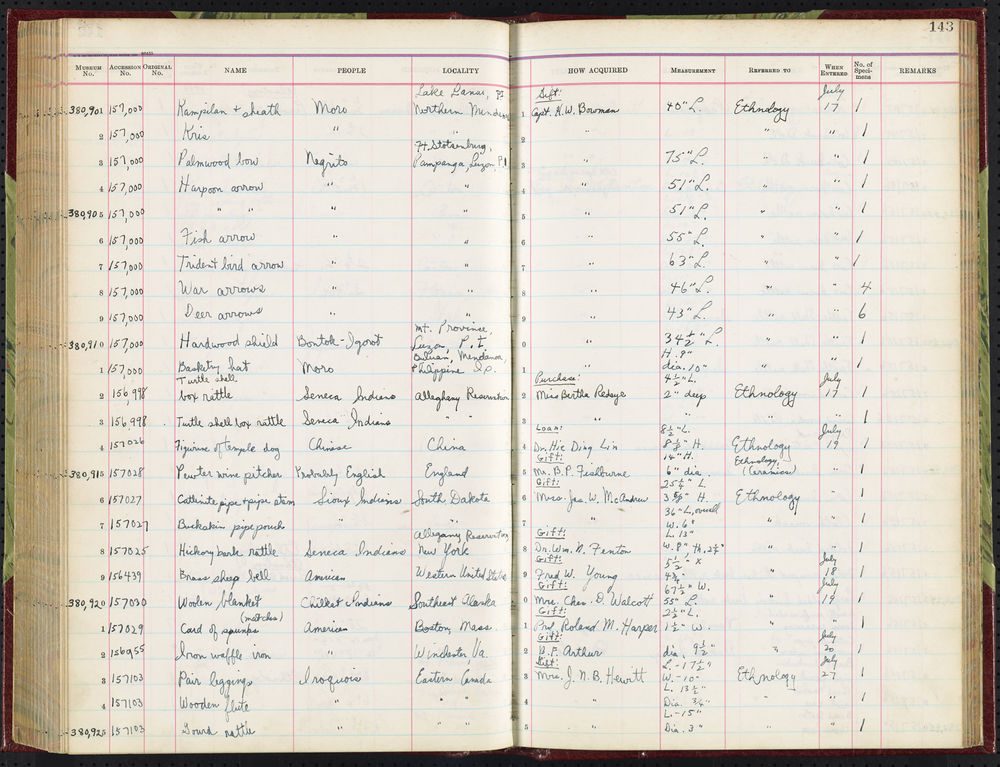 143
MUSEUM No. ACCESSION No. ORIGINAL No. NAME PEOPLE LOCALITY HOW ACQUIRED MEASUREMENT REFERRED TO WHEN ENTERED No. of Speci-mens REMARKS
Lake Lanao, Gift: July
380,901 157,000 Kampilan + sheath Moro Northern 1 Capt. H.W. Bowman 40" L. Ethnology 17 1
2 157,000 Kris " " 2 " " 1
Ft. Stotsenburg,
3 157,000 Palmwood bow Negrito Pampanga, Luzon, P.I 3 " 75" L. " " 1
4 157,000 Harpoon arrow " " 4 " 51" L. " " 1
380,905 157,000 " " " " 5 " 51" L. " " 1
6 157,000 Fish arrow " " 6 " 55" L. " " 1
7 157,000 Trident bird arrow " " 7 " 63" L. " " 1
8 157,000 War arrows " " 8 " 46" L. " " 4
9 157,000 Deer arrows " " 9 " 43" L. " " 6
Mt. Province,
380,910 157,000 Hardwood shield Bontok-Igorot Luzon, P.I. 0 " 34 1/2" L. " " 1
H. 9"
1 157,000 Basketry hat Moro Philippine 1 " dia. 10" " " 1
Turtle shell Purchase: 4 1/2" L. July
2 156,998 box rattle Seneca Indians Alleghany Reservation 2 Miss Bertha 2" deep Ethnology 17 1
3 156,998 Turtle shell box rattle Seneca Indians " " 3 " " " 1
Loan: 8 1/2" L. July
4 157026 Figurine of temple dog Chinese China 4 Dr. Hic Ding Lin H. Ethnology 19 1
Gift: 14" H. Ethnology
380,915 157028 Pewter wine pitcher Probably English England 5 Mr. B.P. Fishburne 6" dia. (Ceramics) " 1
Gift: L.
6 157027 Catlinite pipe + pipe stem Sioux Indians South Dakota 6 Mrs. Jas. W. McAndrew H. Ethnology " 1
36" L. overall
7 157027 Buckskin pipe pouch " " " 7 " W. 6" " " 1
Allegany Reservation Gift: L. 13"
8 157025 Hickory bark rattle Seneca Indians New York 8 Dr. Wm. N. Fenton W. 8" " " 1
Gift: 5 1/2" x July
9 156439 Brass sheep bell American Western United States 9 Fred W. Young " 18 1
Gift: 67 1/2" W. July
380,920 157030 Woolen blanket Chilkat Indians Southeast Alaska 0 Mrs. Chas. D. Walcott 55" L. " 19 1
(matches) Gift: 2 1/2" L.
1 157029 Card of spunks American Boston, Mass. 1 Prof. Roland M. Harper 1 1/2" W. " " 1
Gift: July
2 156955 Iron waffle iron Winchester, Va. 2 D.P. Arthur dia. 9 1/2" " 20 1
Gift: L-17 1/2" July
3 157103 Pair leggings Iroquois Eastern Canada 3 Mrs. J.N.B. Hewitt W.-10" Ethnology 27 1
L. 13 1/2"
4 157103 Wooden flute " " " 4 " Dia. 3/4" " " 1
L.-15"
380,925 157103 Gourd rattle " " " 5 " Dia. 3" " " 1